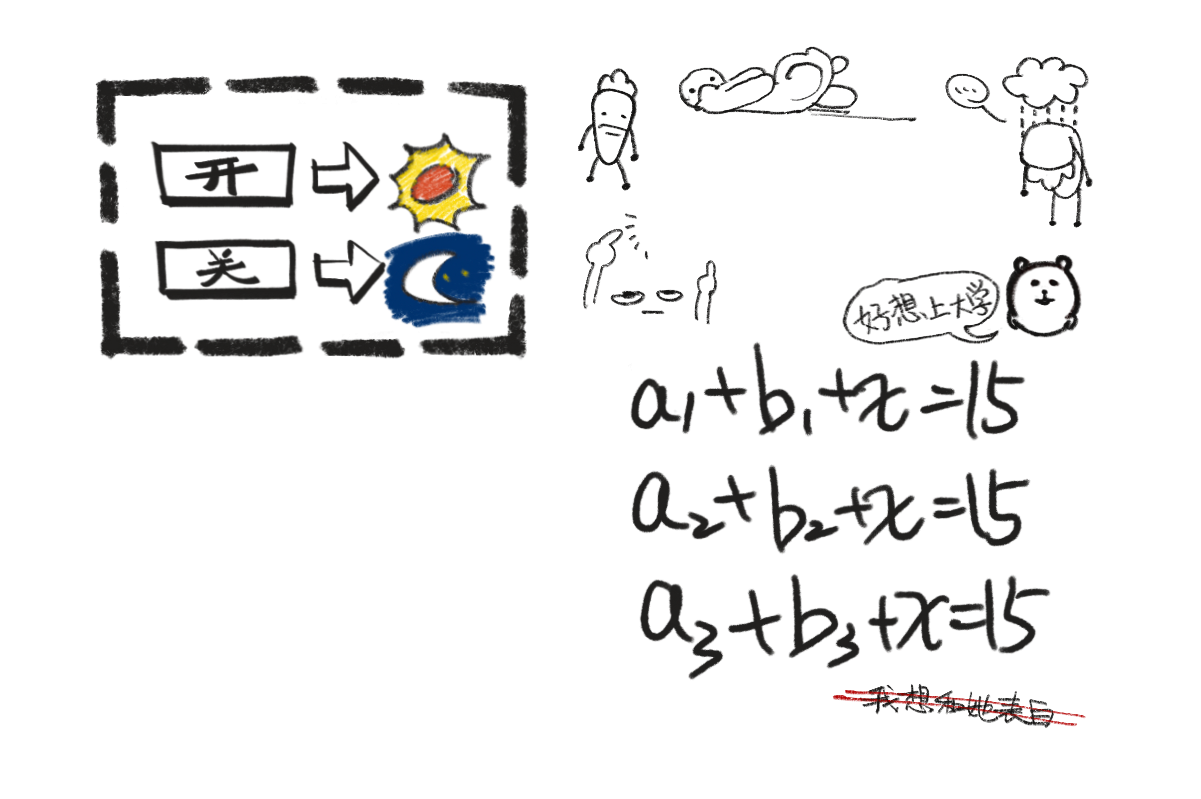 开
关
好想上大学
a₁+b₁+x=15
a₂+b₂+x=15
a₃+b₃+x=15
我想和她表白